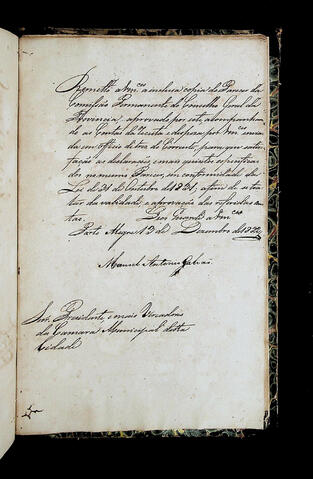 Remetto a Vm.ces a incluza copia do Parecer da
Comissão Permanente do Conselho Geral da
Provincia, approvado por este, acompanhan-
do as Contas da receita e despeza por Vm.ces envia
da em officio de tres do Corrente, para que satis-
fação as declarações, e mais quizitos especificados
no mesmo Parecer, em conformidade da
Lei de 31 de Outubro de 1831, afim de se tra-
tar da validade e aprovação das referidas con-
tas. Deos Guarde a Vm.ces
Porto Alegre 12 de Dezembro de 1832
Manoel Antonio Galvão
Snr.es Prezidente, e mais Vereadores
da Camara Municipal desta
Cidade